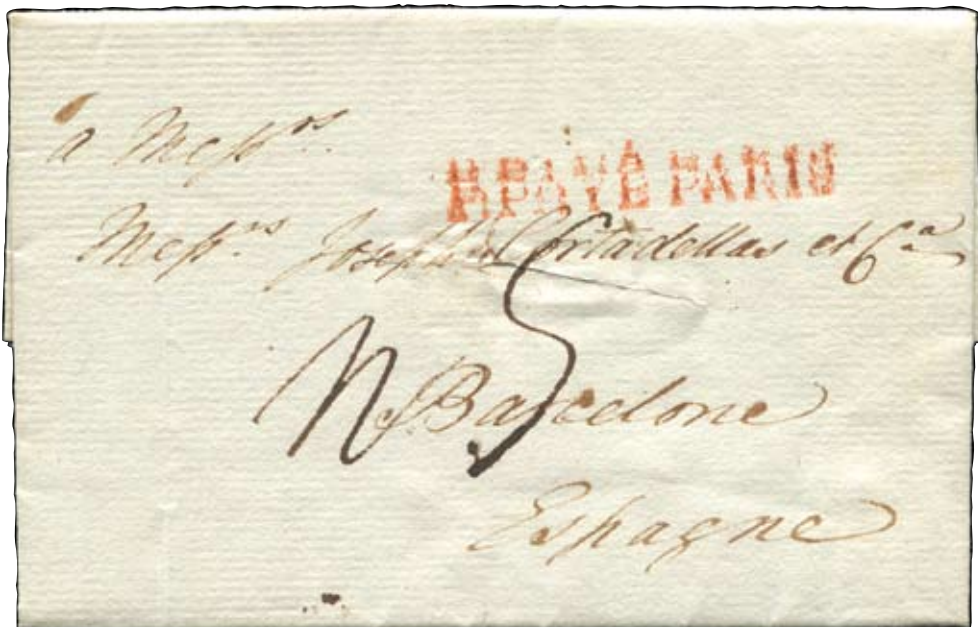 a Mess.rs
R PAYÉ PARIS
Mess.rs Joseph Cortadellas et C.a
n 5
Barcelone
Espagne